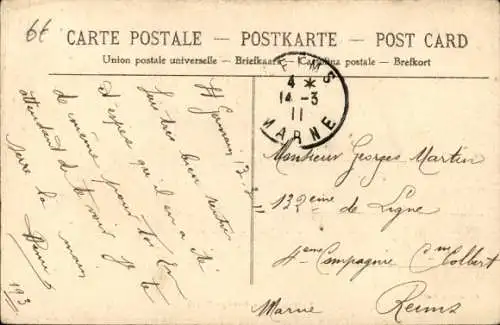 6f
CARTE POSTALE — POSTKARTE — POST CARD
Union postale universelle — Briefkaart — Cartolina postale — Brefkort
REIMS
4 *
14 - 3
11
MARNE
St Germain 13-3
Suis très bien rentré
J'espère qu'il en a été
de même pour toi En
attendant de te voir Je te
serre la main
Monsieur Georges Martin
132eme
de Ligne
4eme Compagnie Cne Colbert
Reims
Marne
193